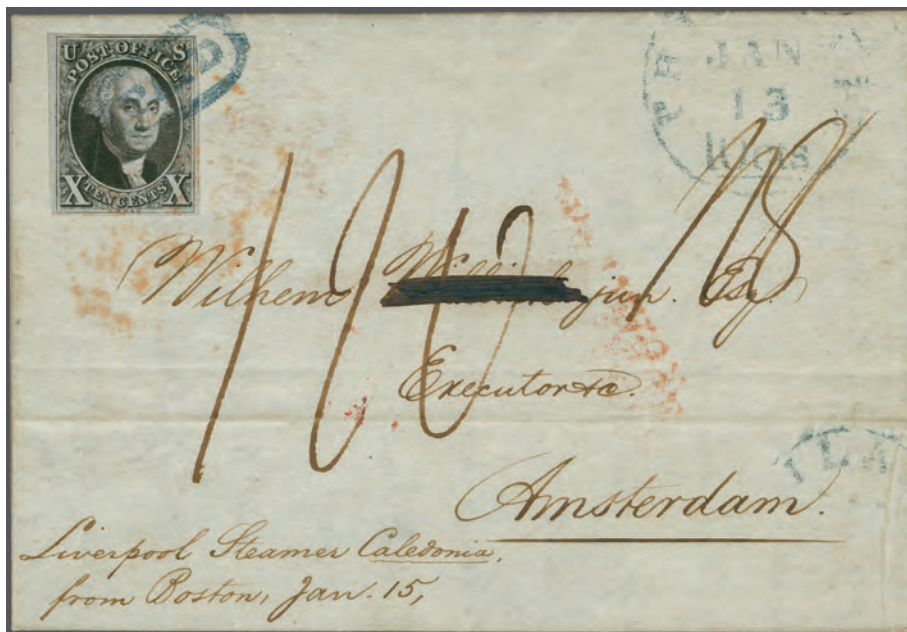 U S
POST OFFICE
X TEN CENTS X
JAN
13
10 cts
Wilhem jun. Esq.
Executor &c.
Amsterdam.
Liverpool Steamer Caledonia,
from Boston, Jan. 15,